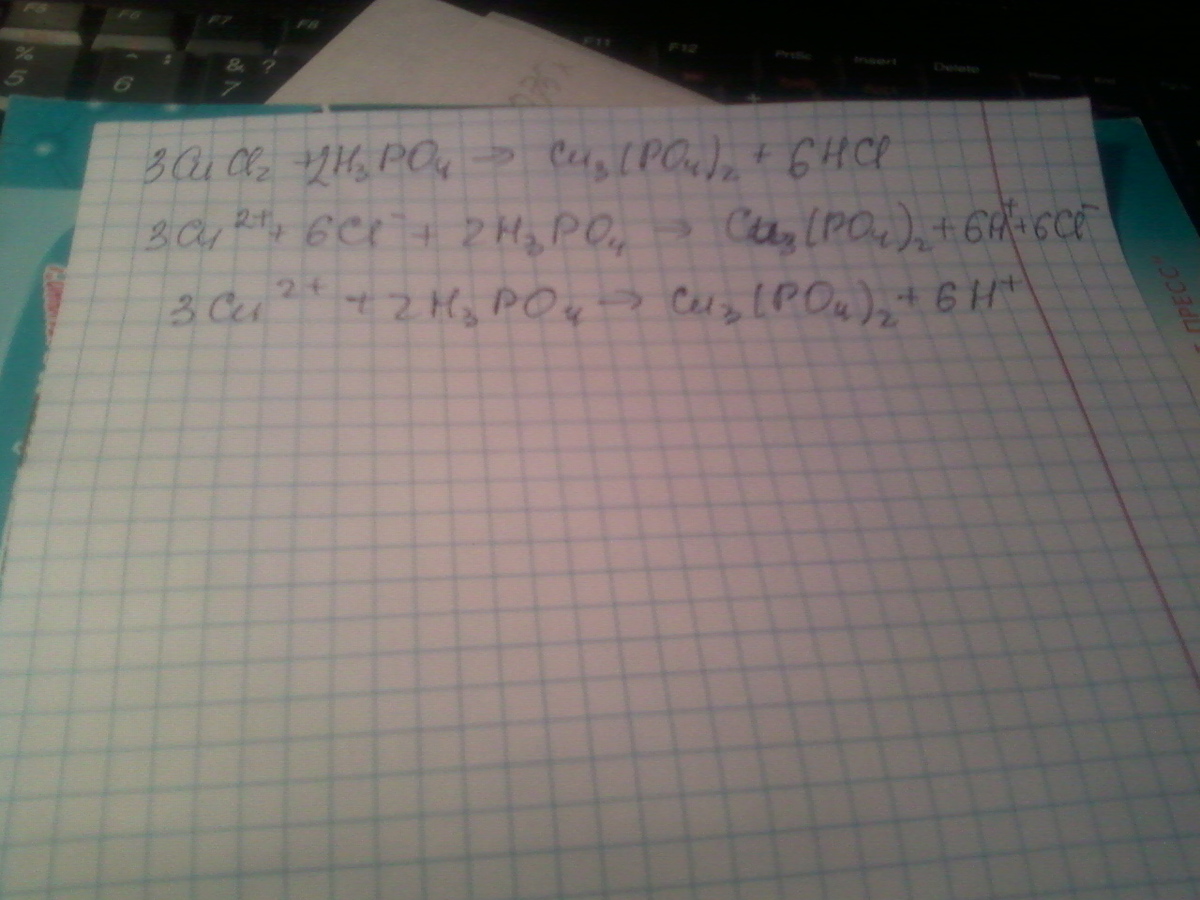 F5 F6 F7 F8 F11 F12 PrtSc Insert Delete
% 5 ^ : 6 & ? 7
3CuCl₂ + 2H₃PO₄ → Cu₃(PO₄)₂ + 6HCl
3Cu²⁺ + 6Cl⁻ + 2H₃PO₄ → Cu₃(PO₄)₂ + 6H⁺ + 6Cl⁻
3Cu²⁺ + 2H₃PO₄ → Cu₃(PO₄)₂ + 6H⁺